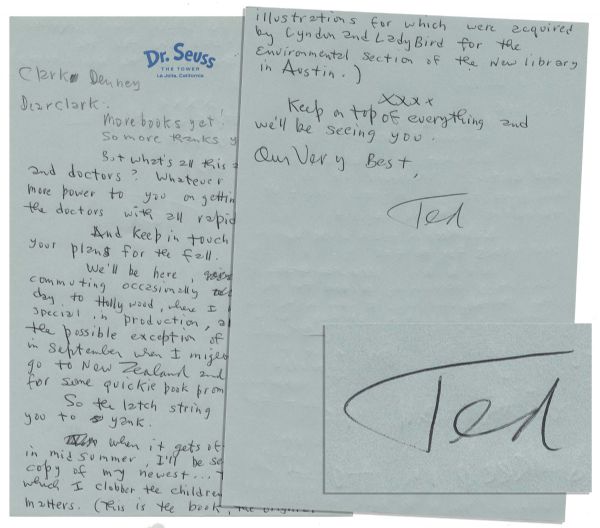 Dr. Seuss
THE TOWER
La Jolla, California
Clark Denney
Dear Clark.
More books yet!
So more thanks y
But what's all this
and doctors? Whatever
more power to you on gettin
the doctors with all rapid
And keep in touch
your plans for the fall.
We'll be here,
commuting occasionally
day, to Hollywood, where I
special in production, a
the possible exception of
in September when I migh
go to New Zealand and
for some quickie book prom
So the latch string
you to yank.
when it gets of
in mid summer, I'll be se
copy of my newest...
which I clobber the children
matters. (This is the book, the original
illustrations for which were acquired
by Lyndon and LadyBird for the
Environmental section of the New library
in Austin.)
xxxx
Keep on top of everything and
we'll be seeing you.
Our Very Best,
Ted
Ted